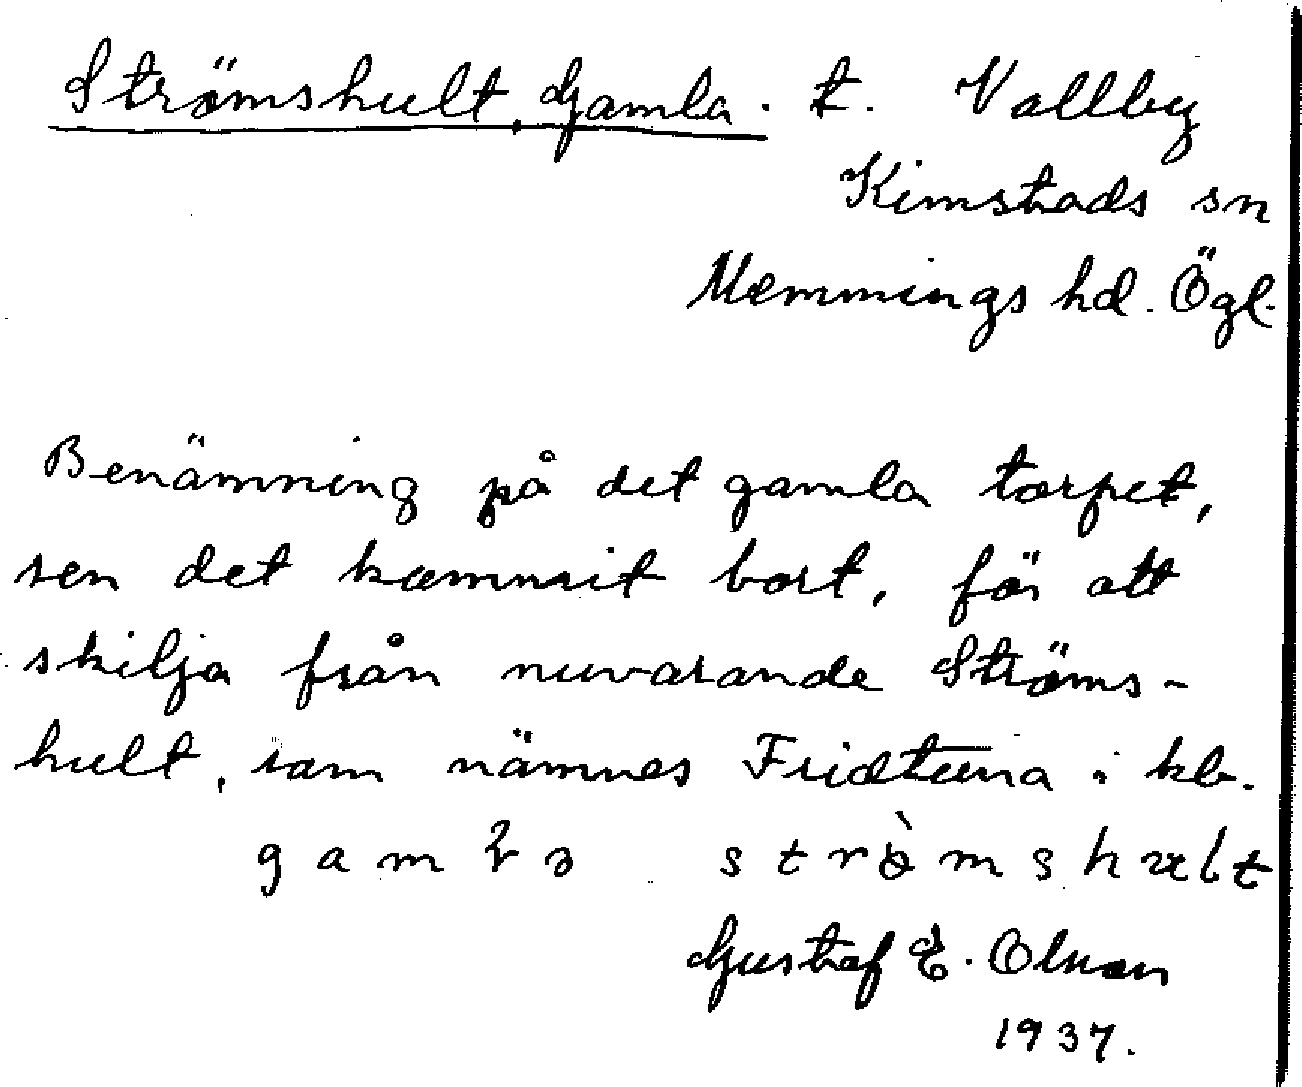 Strömshult, Gamla. t. Vallby
Kimstads sn
Memmings hd. Ögl.
Benämning på det gamla torpet,
sen det kommit bort, för att
skilja från nuvarande Ströms-
hult, som nämnes Fridtuna i kb.
Gustaf E. Olsson
1937.